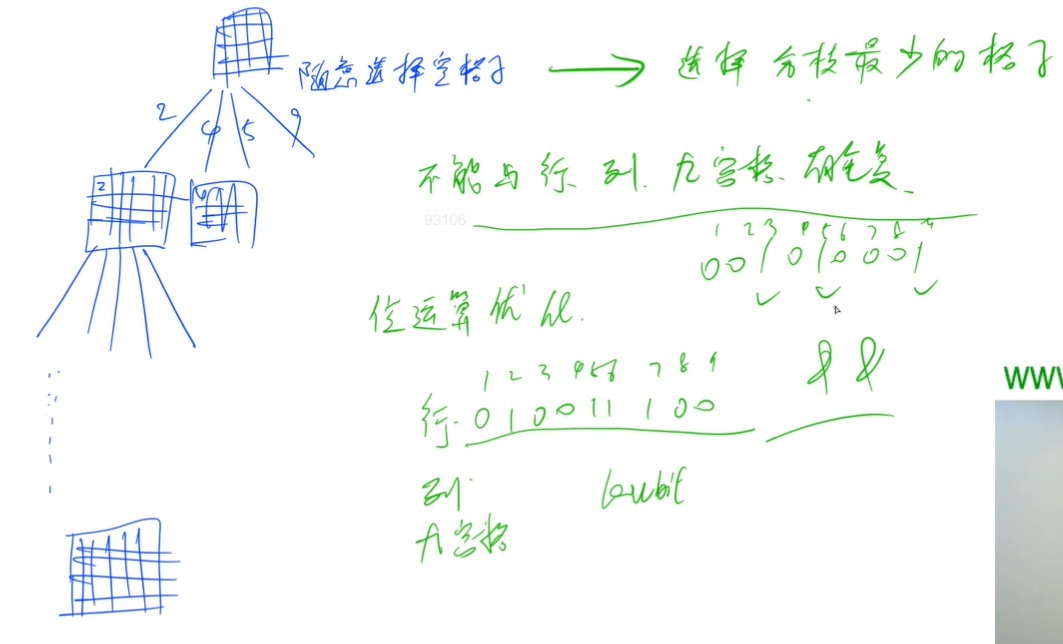 随意选择空格子 → 选择分枝最少的格子
2 4 5 9
不能与行、列、九宫格、有重复、
93106
2
1 2 3 4 5 6 7 8 9
0 0 1 0 1 0 0 0 1
位运算优化.
1 2 3 4 5 6 7 8 9
& &
行. 0 1 0 0 1 1 1 0 0
WWW
列 lowbit
九宫格